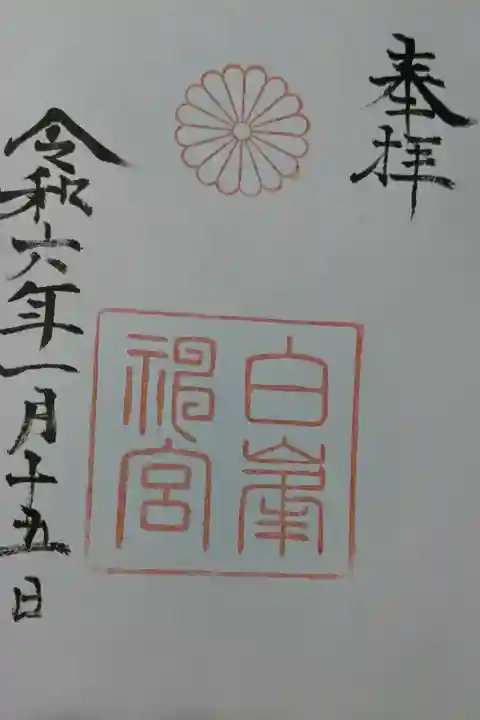 奉拝
白峯
神宮
令和六年一月十五日